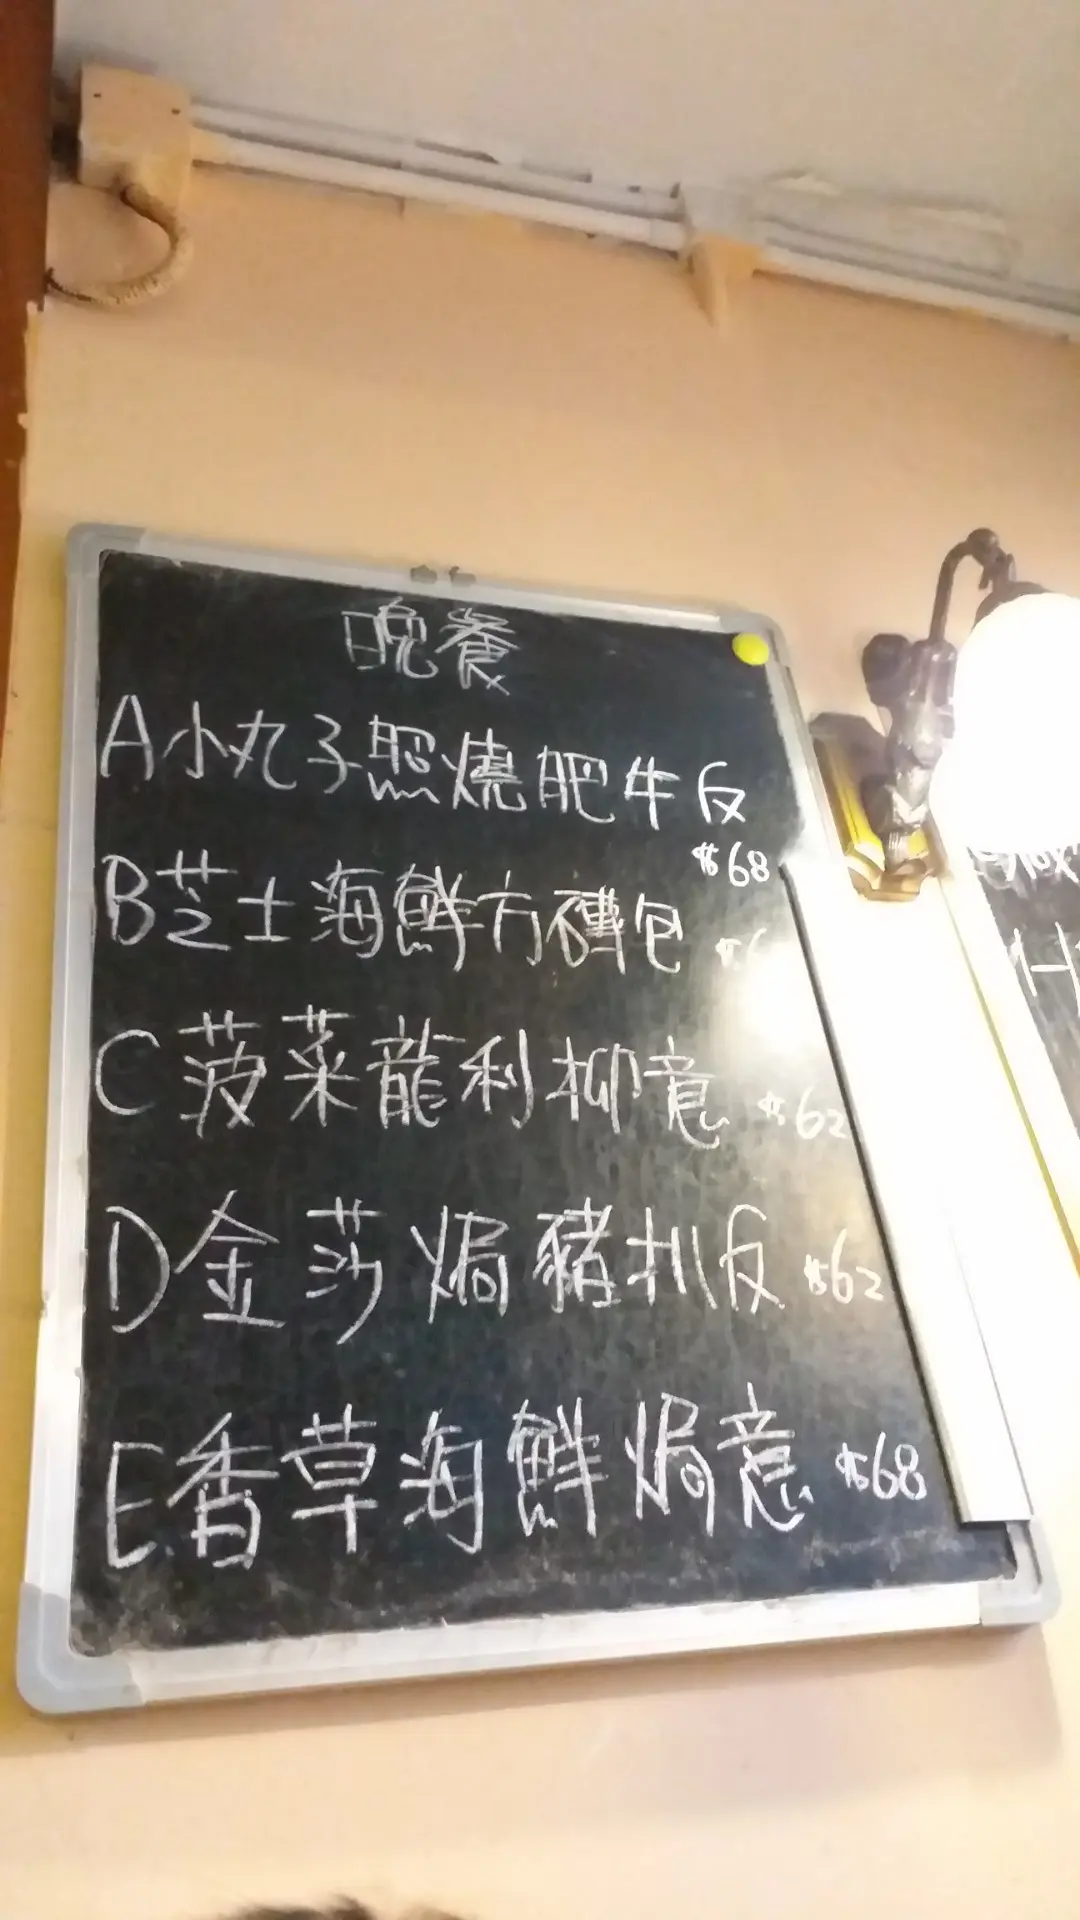 晚餐
A小丸子照燒肥牛反
$68
B芝士海鮮方磚包 $6
C菠菜龍利柳意 $62
D金莎焗豬扒反 $62
E香草海鮮焗意 $68